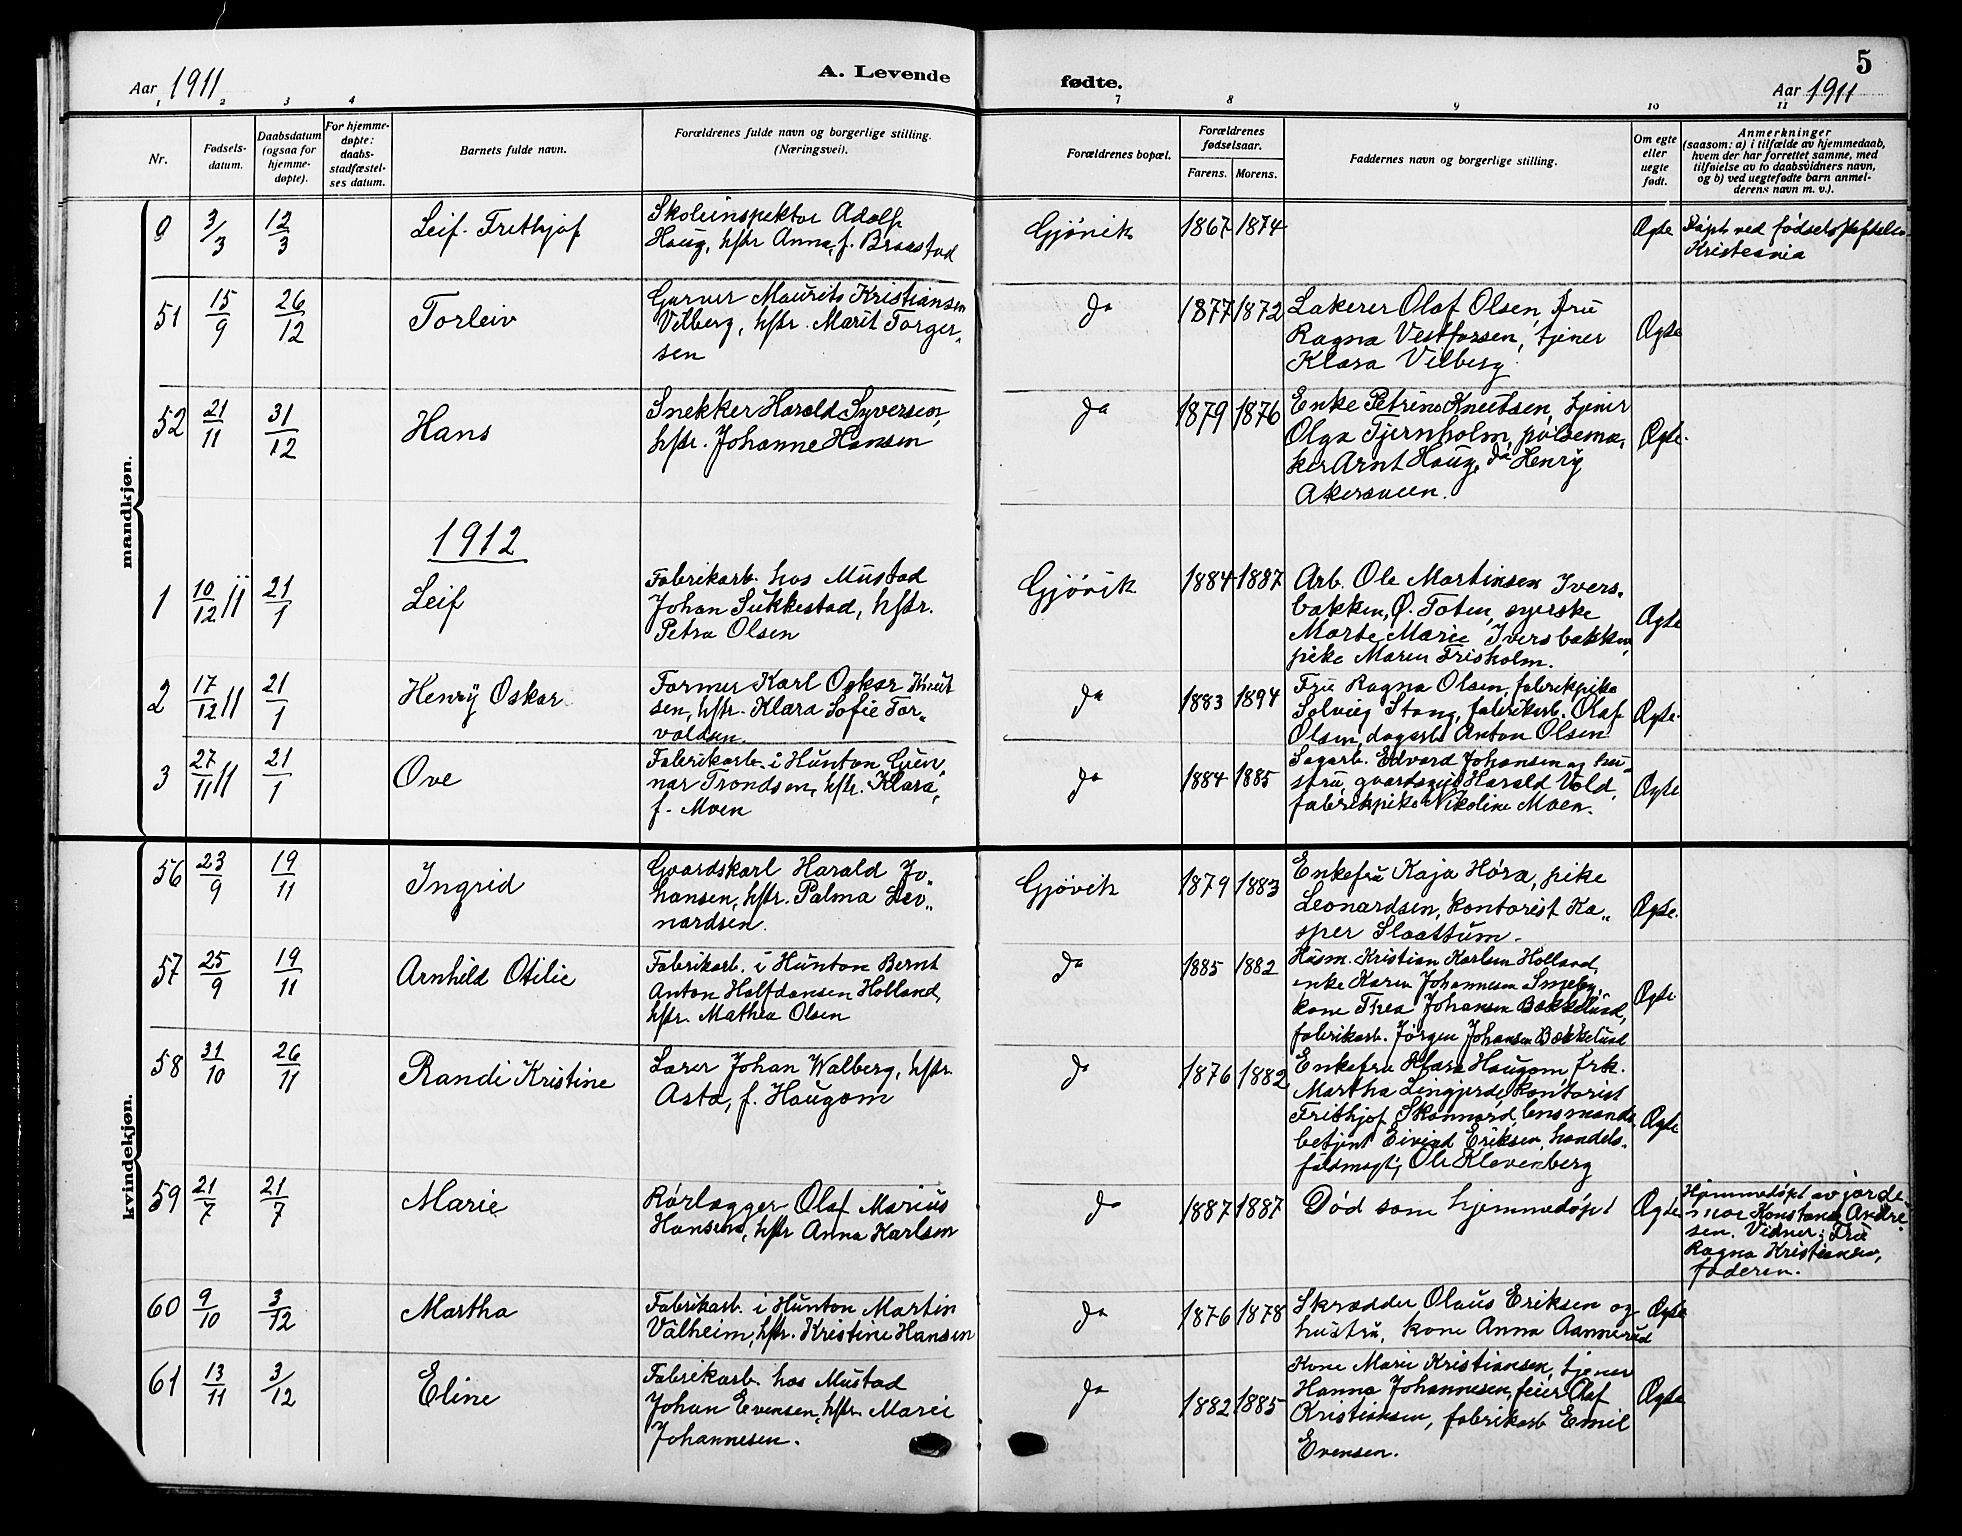 5
Aar 1911
A. Levende
fødte.
Aar 1911
1 2 3 4 7 8 9 10 11
Nr.
Fødsels-
datum.
Daabsdatum
(ogsaa for
hjemme-
døpte).
For hjemme-
døpte:
daabs-
stadfæstel-
ses datum.
Barnets fulde navn.
Forældrenes fulde navn og borgerlige stilling.
(Næringsvei).
Forældrenes bopæl.
Forældrenes
fødselsaar.
Farens. Morens.
Faddernes navn og borgerlige stilling.
Om egte
eller
uegte
født.
Anmerkninger
(saasom: a) i tilfælde av hjemmedaab,
hvem der har forrettet samme, med
tilføielse av to daabsvidners navn,
og b) ved uegtefødte barn anmel-
derens navn m. v.).
mandkjøn.
9 3/3 12/3 Leif Frithjof
Skoleinspektør Adolf
Haug, hstr Anna, f. Braastad
Gjøvik 1867 1874
Ægte
Døpt ved fødselsstiftelsen
Kristiania
51 15/9 26/12 Torleiv
Garver Maurits Kristiansen
Vilberg, hstr. Marit Torger-
sen
do 1877 1872
Lakerer Olaf Olsen, fru
Ragna Vestfossen, tjener
Klara Vilberg
Ægte
52 21/11 31/12 Hans
Snekker Harald Syversen,
hstr. Johanne Hansen
do 1879 1876
Enke Petrine Knutsen, tjener
Olga Tjernholm, pølsema-
ker Arnt Haug, do Henry
Akersveen.
Ægte.
1912
1 10/12 11 21/1 Leif
Fabrikarb. hos Mustad
Johan Sukkestad, hstr.
Petra Olsen
Gjøvik 1884 1887
Arb. Ole Martinsen Ivers-
bakken, Ø. Toten, syerske
Marte Marie Iversbakken,
pike Maren Frisholm.
Ægte
2 17/12 11 21/1 Henry Oskar
Former Karl Oskar Knut
sen, hstr. Klara Sofie Tor-
valdsen.
do 1883 1894
Fru Ragna Olsen, fabrikpike
Solveig Stang, fabrikarb. Olaf
Olsen, dagarb. Anton Olsen
Ægte.
3 27/11 11 21/1 Ove
Fabrikarb. i Hunton Gun-
nar Trondsen, hstr. Klara,
f. Moen
do 1884 1885
Sagarb. Edvard Johansen og hu-
stru, gvardsgut Harald Vold,
fabrikpike Nikoline Moen.
Ægte
kvindekjøn.
56 23/9 19/11 Ingrid
Gvardskarl Harald Jo-
hansen, hstr. Palma Leo-
nardsen.
Gjøvik 1879 1883
Enkefru Kaja Høra, pike
Leonardsen, kontorist Ka-
sper Slaattum.
Ægte.
57 25/9 19/11 Arnhild Otilie
Fabrikarb. i Hunton Bernt
Anton Halfdansen Holland,
hstr. Mathea Olsen
do 1885 1882
Husm. Kristian Karlsen Holland,
enke Karen Johannesen Smeby,
kone Thea Johansen Bækkelund,
fabrikarb. Jørgen Johansen Bækkelund
Ægte
58 31/10 26/11 Randi Kristine
Lærer Johan Walberg, hstr.
Asta, f. Haugom
do 1876 1882
Enkefru Klara Haugom, frk.
Martha Lingjerde, kontorist
Frithjof Skonnord, lensmands-
betjent Eivind Eriksen, handels-
fuldmægtig Ole Klevenberg
Ægte
59 21/7 21/7 Marie
Rørlægger Olaf Marius
Hansen, hstr Anna Karlsen
do 1887 1887
Død som hjemmedøpt
Ægte
Hjemmedøpt av jorde-
mor Konstance Andre-
sen. Vidner: Fru
Ragna Kristiansen,
faderen.
60 9/10 3/12 Martha
Fabrikarb. i Hunton Martin
Valheim, hstr. Kristine Hansen
do 1876 1878
Skrædder Olaus Eriksen og
hustru, kone Anna Aannerud
Ægte
61 13/11 3/12 Eline
Fabrikarb. hos Mustad
Johan Evensen, hstr. Marie
Johannesen.
do 1882 1885
Kone Marie Kristiansen, tjener
Hanna Johannesen, feier Olaf
Kristiansen, fabrikarb Emil
Evensen.
Ægte